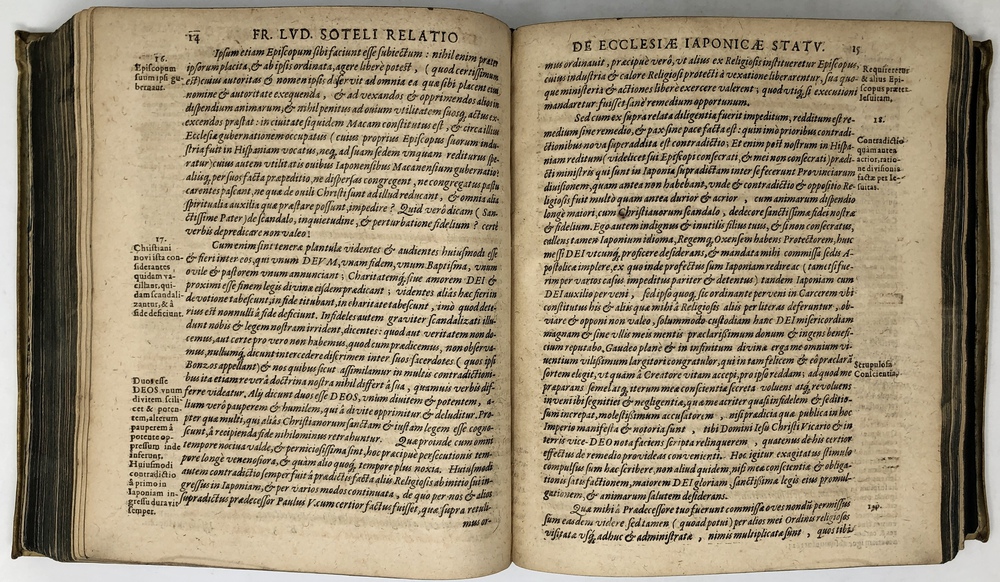 14
FR. LVD. SOTELI RELATIO
16.
Episcopum
suum ipsi gu-
bernant.
Ipsum etiam Episcopum sibi faciunt esse subiectum: nihil enim præter
ipsorum placita, & ab ipsis ordinata, agere liberè potest, (quod certissimum
est) cuius autoritas & nomen ipsis deservit ad omnia ea quæ sibi placent eius
nomine & autoritate exequenda, & ad vexandos & opprimendos alios in
dispendium animarum, & nihil penitus ad ovium utilitatem suosq, actus ex-
ercendos præstat: in civitate siquidem Macam constitutus est, & circa illius
Ecclesiæ gubernationem occupatus (cuius proprius Episcopus suorum indu-
stria fuit in Hispaniam vocatus, neq, ad suam sedem vnquam rediturus spe-
ratur) cuius autem vtilitatis ovibus Iaponensibus Macanensium gubernatio?
aliisq, per suos facta præpeditio, ne dispersas congregent, ne congregatas pastu
carentes pascant, ne qua de ovili Christi sunt ad illud reducant, & omnia alia
spiritualia auxilia quæ præstare possunt, impedire? Quid verò dicam (San-
ctissime Pater) de scandalo, inquietudine, & perturbatione fidelium? certè
verbis depredicare non valeo!
17.
Christiani
novi ista con-
siderantes
quidam va-
cillant, qui-
dam scandali-
zantur, & à
fide deficiunt.
Cum enim sint teneræ plantulæ videntes & audientes huiusmodi esse
& fieri inter eos, qui vnum DEVM, vnam fidem, vnum Baptisma, vnum
ovile & pastorem vnum annunciant; Charitatemq, sive amorem DEI &
proximi esse finem legis divinæ eisdem prædicant; videntes aliàs hæc fieri in
devotione tabescunt, in fide titubant, in charitate tabescunt, imò quod dete-
rius est nonnulli à fide deficiunt. Infideles autem graviter scandalizati illu-
dunt nobis & legem nostram irrident, dicentes: quod aut veritatem non do-
cemus, aut certe pro vero non habemus, quod cum prædicemus, non observa-
mus, nullumq, dicunt intercedere discrimen inter suos sacerdotes (quos ipsi
Bonzos appellant) & nos quibus sicut assimilamur in multis contradictioni-
bus ita etiam re vera doctrina nostra nihil differt à sua, quamvis verbis dif-
Duos esse
DEOS vnum
divitem scili-
cet & poten-
tem, alterum
pauperem à
potente op-
pressum inde
inferunt.
Huiusmodi
contradictio
à primo in
Iaponiam in-
gressu duravit
semper.
ferre videatur. Alij dicunt duos esse DEOS, vnum divitem & potentem, a-
lium verò pauperem & humilem, qui à divite opprimitur & deluditur. Pro-
pter quæ multi, qui aliàs Christianorum sanctam & iustam legem esse cogno-
scunt, à recipienda fide nihilominus retrahuntur. Quæ proinde cum omni
tempore noctua valde, & perniciosissima sint, hoc præcipuè persecutionis tem-
pore longè venenosiora, & quàm alio quoq, tempore plus noxia. Huiusmodi
autem contradictio semper fuit à prædictis facta aliis Religiosis ab initio sui in-
gressus in Iaponiam, & per varios modos continuata, de quo per nos & alios
supradictus prædecessor Paulus V. cum certior factus fuisset, quæ supra retuli-
mus or-
DE ECCLESIÆ IAPONICÆ STATV.
15
mus ordinavit, præcipuè verò, vt alius ex Religiosis institueretur Episcopus,
cuius industria & calore Religiosi protecti à vexatione liberarentur, sua quo-
que ministeria & actiones libere exercere valerent; quod vtiq, si executioni
mandaretur fuisset sanè remedium opportunum.
Requiretur
& alius Epi-
scopus præter
Iesuitam.
Sed cum ex supra relata diligentia fuerit impeditum, redditum est re-
medium sine remedio, & pax sine pace facta est: quin imò prioribus contradi-
ctionibus nova superaddita est contradictio: Etenim post nostrum in Hispa-
niam reditum (videlicet sui Episcopi consecrati, & mei non consecrati) prædi-
cti ministris qui sunt in Iaponia supradictam inter se fecerunt Provinciarum
divisionem, quam antea non habebant, vnde & contradictio & oppositio Re-
ligiosis fuit multò quam antea durior & acrior, cum animarum dispendio
longè maiori, cum Christianorum scandalo, dedecore sanctissimæ fidei nostræ
& fidelium. Ego autem indignus & inutilis filius tuus, & si non consecratus,
callens tamen Iaponium idioma, Regemq, Oxensem habens Protectorem, huic
messi DEI vtcunq, proficere desiderans, & mandata mihi commissa sedis A-
postolicæ implere, ex quo inde profectus sum Iaponiam redire ac (tametsi fue-
rim per varios casus impeditus pariter & detentus) tandem Iaponiam cum
DEI auxilio perveni, sed ipso quoq, sic ordinante perveni in Carcerem vbi
constitutus his & aliis quæ mihi à Religiosis aliis per literas deferuntur, ob-
viare & opponi non valeo, solummodo custodiam hanc DEI misericordiam
magnam & sine vllis meis meritis præclarissimum donum & ingens benefi-
cium reputabo, Gaudeo planè & in infinitum divinæ erga me omnium vi-
ventium vilissimum largitori congratulor, qui in tam felicem & cò præclarâ
sortem elegit, vt quam à Creatore vitam accepi, pro ipso reddam; ad quod me
præparans semel atq, iterum meæ conscientiæ secreta volvens atq, revolvens
inveni ibi segnitiei & negligentiæ, quæ me acriter quasi infidelem & seditio-
sum increpat, molestissimum accusatorem, nisi prædicta quæ publica in hoc
Imperio manifesta & notoria sunt, tibi Domini Iesu Christi Vicario & in
terris vice-DEO nota faciens scripta relinquerem, quatenus de his certior
effectus de remedio provideas convenienti. Hoc igitur exagitatus stimulo
compulsus sum hæc scribere, non aliud quidem, nisi meæ conscientiæ & obliga-
tionis satisfactionem, maiorem DEI gloriam, sanctissimæ legis eius promul-
gationem, & animarum salutem desiderans.
18.
Contradictio
quam antea
acrior, ratio-
ne divisionis
factæ per Ie-
suitas.
Scrupulosa
Conscientia.
Quæ mihi à Prædecessore tuo fuerunt commissa oves nondū permissus
sum easdem videre sed tamen (quoad potui) per alios mei Ordinis religiosos
visitatæ vsq, adhuc & administratæ, nimis multiplicatæ sunt, quos tibi
19.